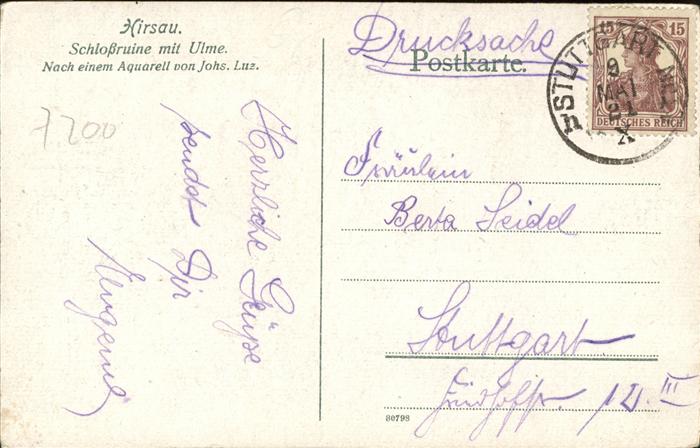 Hirsau.
Schloßruine mit Ulme.
Nach einem Aquarell von Johs. Luz.
7200
Herzliche Grüße
sendet Dir
Eugenie
Drucksache
Postkarte.
15 15
DEUTSCHES REICH
STUTTGART
9
MAI
Fräulein
Berta Seidel
Stuttgart.
12. III
80798